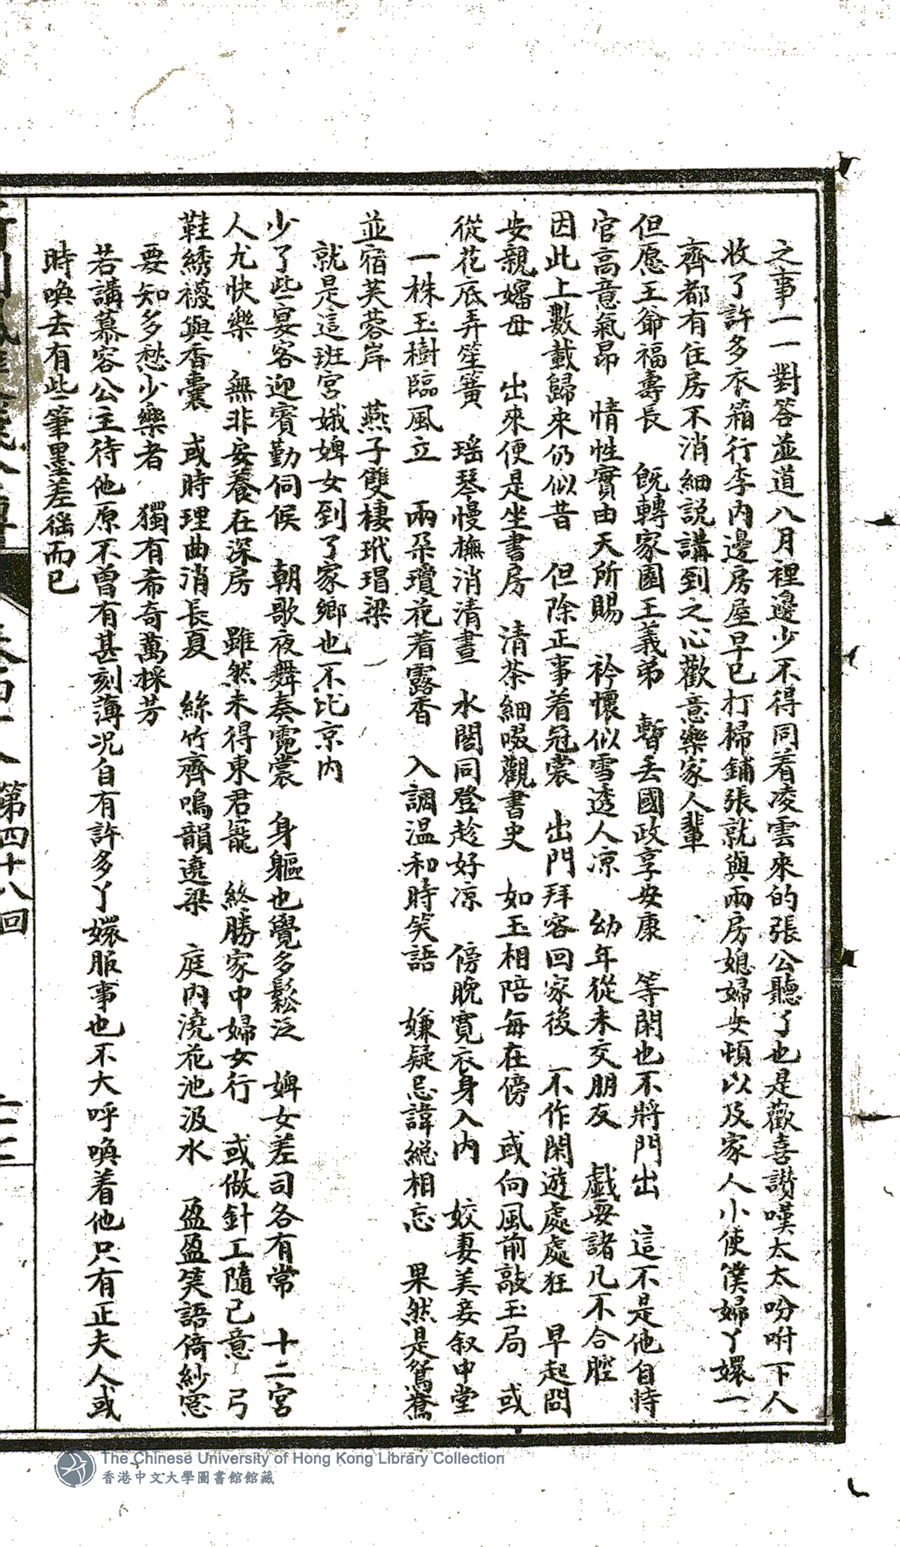 之事一一對答並道八月裡邊少不得同着凌雲來的張公聽了也是歡喜讚嘆太太吩咐下人
收了許多衣箱行李內邊房屋早已打掃鋪張就與兩房媳婦安頓以及家人小使僕婦丫嬛一
齊都有住房不消細説講到之心歡意樂家人輩
但愿王爺福壽長 既轉家園王義弟 暫丢國政享安康 等閑也不將門出 這不是他自恃
官高意氣昂 情性實由天所賜 衿懷似雪透人凉 幼年從未交朋友 戲耍諸凡不合腔
因此上數載歸來仍似昔 但除正事着冠裳 出門拜客回家後 不作閑遊處處狂 早起問
安親嬸母 出來便是坐書房 清茶細啜觀書史 如玉相陪每在傍 或向風前敲玉局 或
從花底弄笙簧 瑶琴慢撫消清晝 水閣同登趁好凉 傍晚寛衣身入內 姣妻美妾叙中堂
一株玉樹臨風立 兩朶瓊花着露香 入調温和時笑語 嫌疑忌諱縂相忘 果然是鴛鴦
並宿芙蓉岸 燕子雙棲玳瑁梁
就是這班宮娥婢女到了家鄉也不比京內
少了些宴客迎賓勤伺候 朝歌夜舞奏霓裳 身軀也覺多鬆泛 婢女差司各有常 十二宮
人尤快樂 無非安養在深房 雖然未得東君寵 終勝家中婦女行 或做針工隨己意 弓
鞋綉襪與香囊 或時理曲消長夏 絲竹齊鳴韻遶梁 庭內澆花池汲水 盈盈笑語倚紗窓
要知多愁少樂者 獨有希奇萬採芳
若講慕容公主待他原不曾有甚刻薄况自有許多丫嬛服事也不大呼喚着他只有正夫人或
時喚去有些筆墨差徭而已
第四十八回
The Chinese University of Hong Kong Library Collection
香港中文大學圖書館館藏